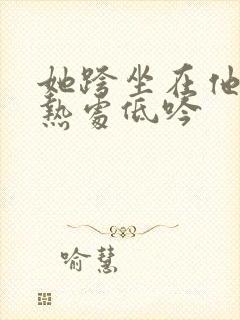 她跨坐在他
热处低吟
喻慧